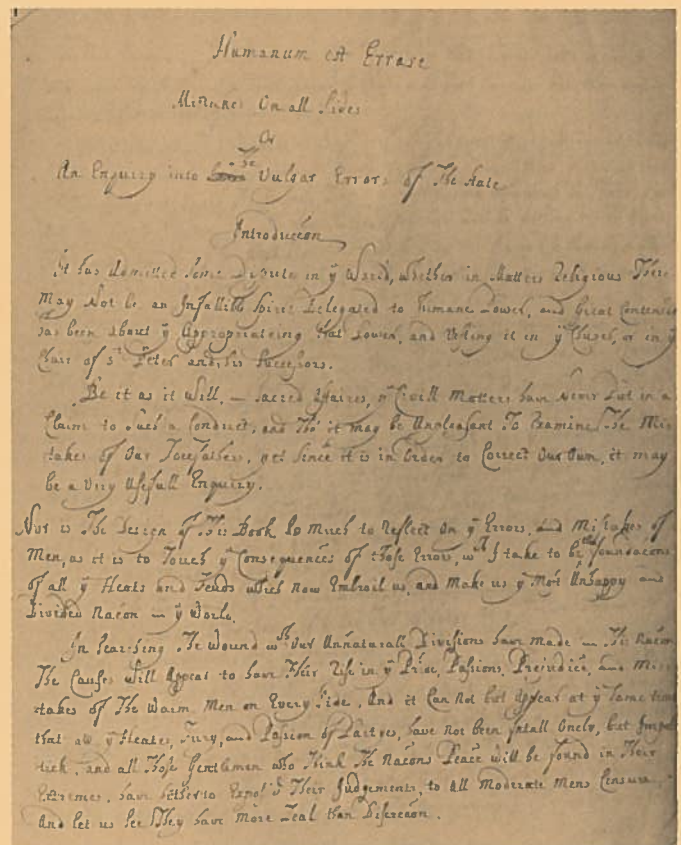 Humanum est Errare
Mistakes On all Sides
Or
The
An Enquiry into Vulgar Errors of The State
Introduccon
It has Admitted Some Dispute in ye World, whether in Matters Religious There
May Not be an Infallible Spirit Delegated to Humane Power, and Great Contention
has been about ye Appropriateing that Power, and Vesting it in ye Church, or in ye
Chair of St Peter and his Successors.
Be it as it Will, in Sacred Affaires, Civill Matters have Never Put in a
Claim to Such a Conduct, and Tho' it may be Unpleasant To Examine The Mis
takes of Our Forefathers, yet Since it is in Order to Correct Our Own, it may
be a Very Usefull Enquiry.
Nor is The Design of This Book So much to Reflect On ye Errors, and Mistakes of
Men, as it is to Touch ye Consequences of those Errors, wch I take to be the foundacons
of all ye Heats and Feuds which now Embroil us, and Make us ye Most Unhappy and
Divided Nacon in ye World.
In Searching The Wound wch Our Unnaturall Divisions have made in The Nacon
The Causes Will Appear to have Their Rise in ye Pride, Passions, Prejudice, and Mis
takes of The Warm Men on Every Side, And it Can Not but Appear at ye Same time
that all ye Heates, Fury, and Passion of Partyes, have not been fatall Onely, but
tick, and all Those Gentlemen who Think The Nacons Peace will be found in Their
Extremes, have hitherto Expos'd Their Judgements, to all Moderate Mens Censure,
And let us See They have more Zeal than Discrecon.